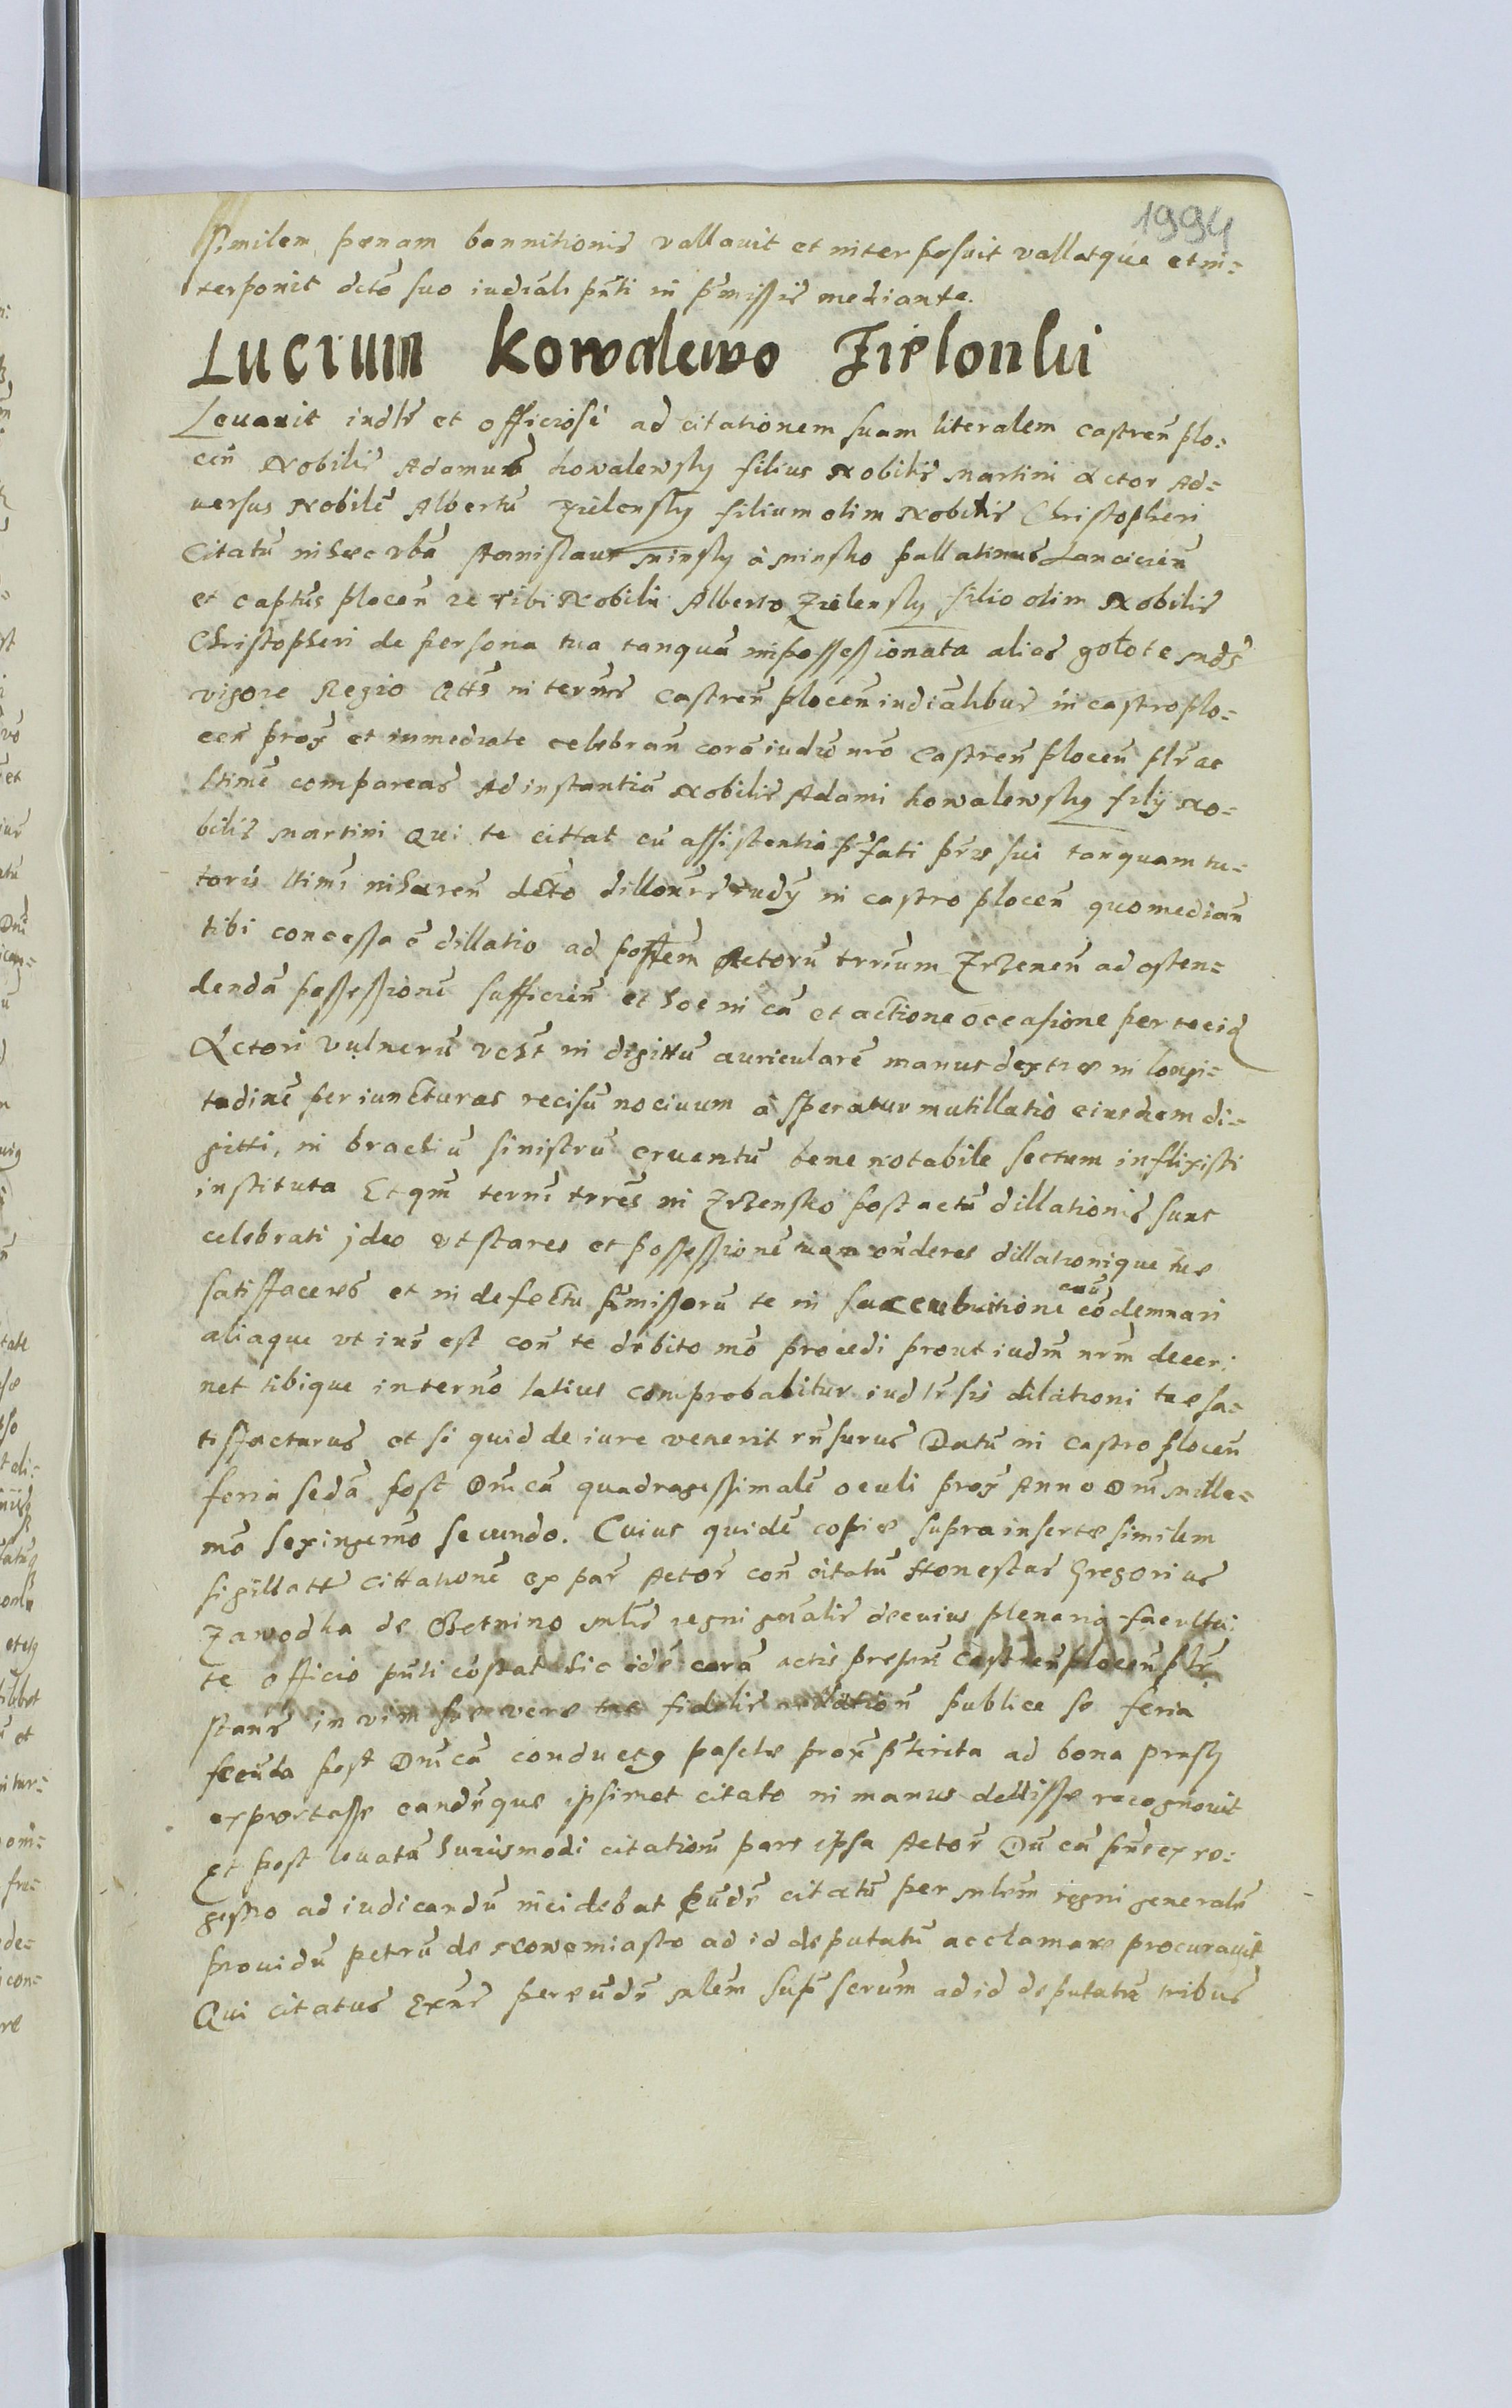 1994
similem pœnam bannitionis vallauit et interposuit vallatque et in=
terponit dcto suo iudiciali pnti in pmissis mediante.
Lucrum Kowalewo Zielonki
Leuauit indlr et officiose ad citationem suam literalem castren plo=
cen Nobilis Adamus kowalewsky filius Nobilis Martini Actor Ad=
uersus Nobile Albertu Zielensky filium olim Nobilis Christopheri
Citatu in hæc vba Stanislaus Minsky à Minsko pallatinus Lancicien
et captus plocen ze tibi Nobili Alberto Zielensky filio olim Nobilis
Christopheri de persona tua tanqua inpossessionata alias gołote mds
vigore Regio qtts in ternis castren plocen iudicialibus in castro plo=
cen prox et inmediate celebran cora iudio nro Castren plocen plr ac
ltime compareas Ad instantia Nobilis Adami kowalewsky filij No=
bilis Martini Qui te cittat cu assistentia pfati pris sui tanquam tu=
toris ltimi inhæren dcto dillonis iudy in castro plocen quo median
tibi concessa e dillatio ad postem Actoru trrium Zrzenen ad osten=
denda possessione sufficien et hoc in ca et actione occasione per te eid
Actori vulneru vdzt in digittu auriculare manus dextræ in longi=
tudine per iuncturas recisu nociuum à speratur mutillatio eiusdem di=
gitti, in brachiu sinistru cruentu bene notabile sectum inflixisti
instituta Et qm termi trres in Zrzensko post actu dillationis sunt
celebrati ideo vt stares et possessione tuam onderes dillationique tuæ
satisfaceres et in defectu pmissoru te in succubitione caus codemnari
aliaque vt iuris est con te debito mo procedi prout iudm nrm decer=
net tibique in terno latius comprobabitur iudlr sis dilationi tuæ sa=
tisfacturus et si quid de iure venerit rnsurus Datu in castro plocen
feria seda post Dnica quadragessimale oculi prox Anno Dni Mille=
mo sexingemo secundo. Cuius quide copiæ supra insertæ similem
sigillatt cittatione ex par Actor con citatu Honestus Gregorius
Zawodka de mlis regni gnalis de cuius plenaria faculta=
te officio pnti costat sic ide cora actis prepns castren plocen plr
stans in vim suæ veræ fidelis relation publice se feria
secuda post Dnica conductq paschæ prox pterita ad bona
exportasse eandeque ipsimet citato in manus dedisse recognouit
Et post leuata huiusmodi citationu pars ipsa Actor Du ca pns ex re=
gestro ad iudicandu incidebat Eude citatu per mlem regni generale
prouidu petru de nowomiasto ad id deputatu acclamare procurauit
Qui citatus Exns per eude mlem sup serum ad id deputatu tribus